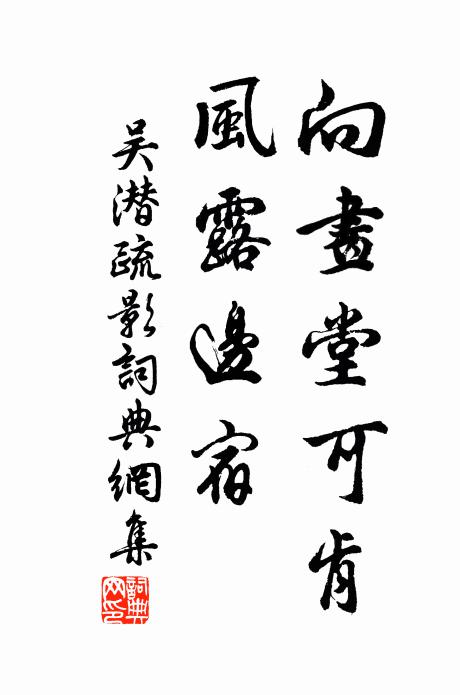 向畫堂可肯
風露邊宿
吴潜疏影詞典網集
詞典網印